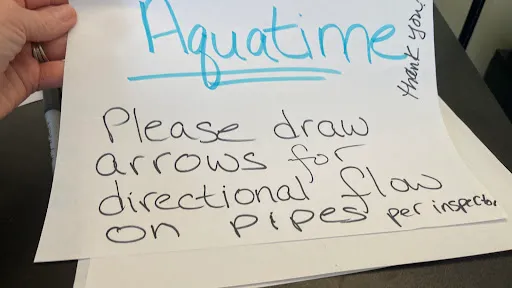 Aquatime
Thank you.
Please draw
arrows for
directional flow
on pipes per inspector